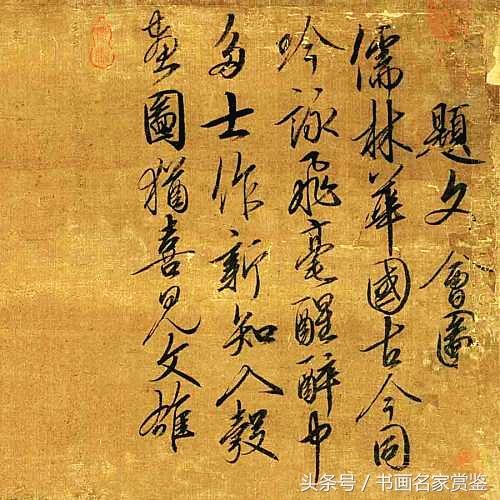 題文會圖
儒林華國古今同
吟詠飛毫醒醉中
多士作新知入彀
畫圖猶喜見文雄
头条号 / 书画名家赏鉴